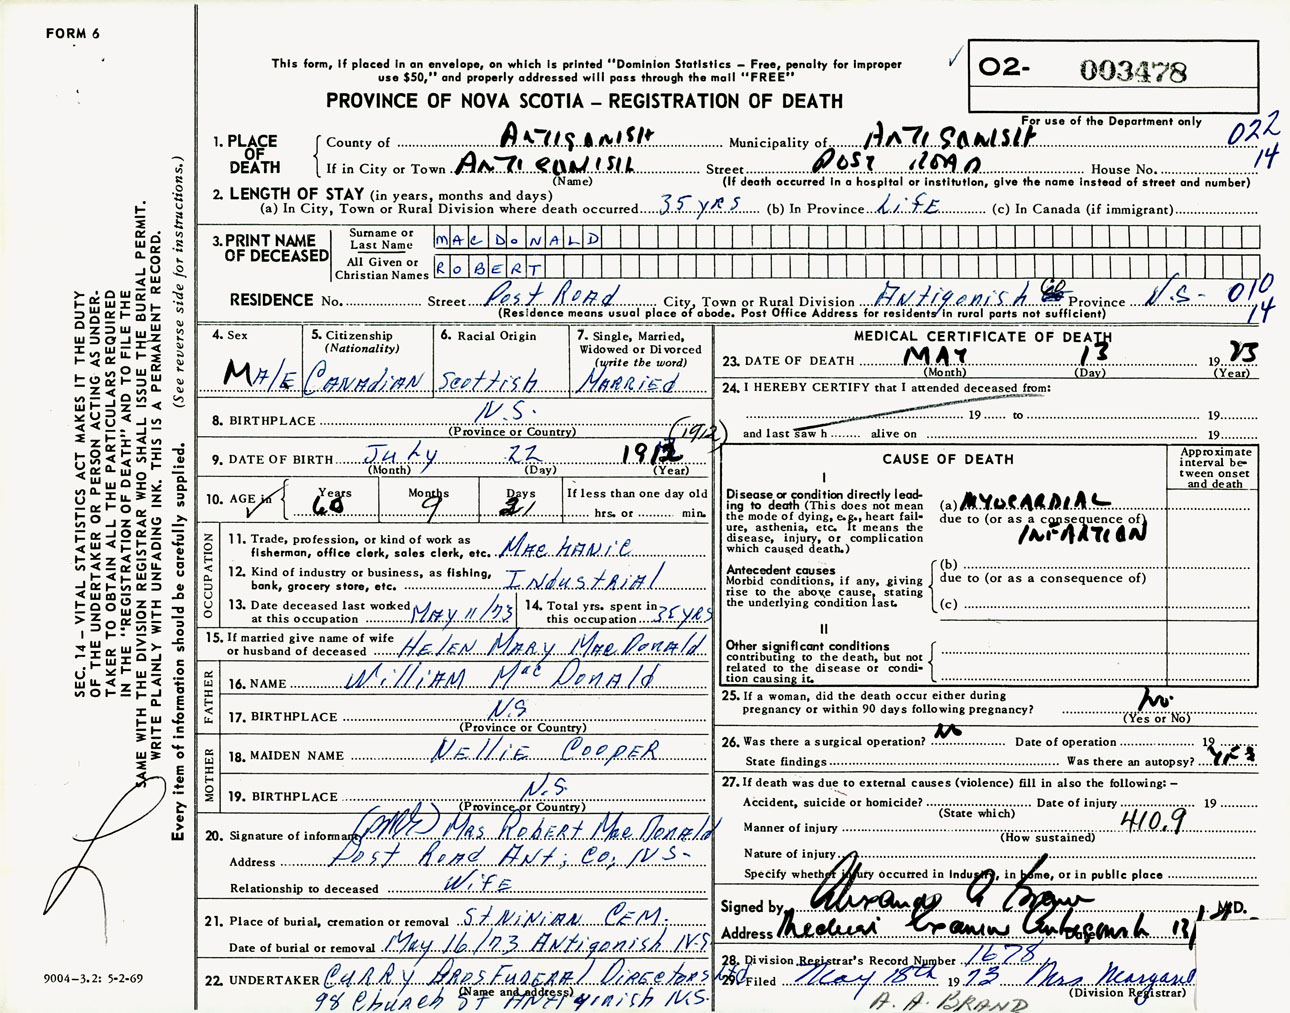 FORM 6
This form, if placed in an envelope, on which is printed "Dominion Statistics – Free, penalty for improper
use $50," and properly addressed will pass through the mail "FREE"
PROVINCE OF NOVA SCOTIA – REGISTRATION OF DEATH
✓ O2- 003478
For use of the Department only
022
14
1. PLACE OF DEATH
County of ANTIGONISH Municipality of ANTIGONISH
If in City or Town ANTIGONISH Street POST ROAD House No.
(Name) (If death occurred in a hospital or institution, give the name instead of street and number)
2. LENGTH OF STAY (in years, months and days)
(a) In City, Town or Rural Division where death occurred 35 yrs (b) In Province LiFE (c) In Canada (if immigrant)
3. PRINT NAME OF DECEASED
Surname or Last Name MACDONALD
All Given or Christian Names ROBERT
RESIDENCE No. Street Post Road City, Town or Rural Division Antigonish Co Province N.S- 010
14
(Residence means usual place of abode. Post Office Address for residents in rural parts not sufficient)
4. Sex
MALE
5. Citizenship
(Nationality)
CANADIAN
6. Racial Origin
Scottish
7. Single, Married,
Widowed or Divorced
(write the word)
MARRiED
8. BIRTHPLACE N.S.
(Province or Country)
(1912)
9. DATE OF BIRTH July 22 1912
(Month) (Day) (Year)
10. AGE in Years 60 Months 9 Days 21 If less than one day old
hrs. or min.
OCCUPATION
11. Trade, profession, or kind of work as
fisherman, office clerk, sales clerk, etc. MacHANiC
12. Kind of industry or business, as fishing,
bank, grocery store, etc. INdustRiAl
13. Date deceased last worked
at this occupation MAY 11/73
14. Total yrs. spent in
this occupation 35 YRS
15. If married give name of wife
or husband of deceased HELEN MARY MacDonald
FATHER
16. NAME William MacDonald
17. BIRTHPLACE N.S
(Province or Country)
MOTHER
18. MAIDEN NAME NELLiE COOPER
19. BIRTHPLACE N.S.
(Province or Country)
20. Signature of informant Mrs Robert MacDonald
Address Post Road Ant; Co; NS-
Relationship to deceased WiFE
21. Place of burial, cremation or removal St. NiNiAN CEM.
Date of burial or removal May 16/73 Antigonish N.S
22. UNDERTAKER CURRY BROS FUNERAL DiRECTORS Ltd
(Name and address)
98 Church St ANTiginish N.S.
MEDICAL CERTIFICATE OF DEATH
23. DATE OF DEATH MAY 13 19 73
(Month) (Day) (Year)
24. I HEREBY CERTIFY that I attended deceased from:
19 to 19
and last saw h alive on 19
CAUSE OF DEATH
Approximate interval between onset and death
I
Disease or condition directly leading to death (This does not mean the mode of dying, e.g., heart failure, asthenia, etc. It means the disease, injury, or complication which caused death.)
(a) MYOCARDIAL
due to (or as a consequence of)
INFARTION
Antecedent causes
Morbid conditions, if any, giving rise to the above cause, stating the underlying condition last.
(b)
due to (or as a consequence of)
(c)
II
Other significant conditions
contributing to the death, but not related to the disease or condition causing it.
25. If a woman, did the death occur either during
pregnancy or within 90 days following pregnancy? No
(Yes or No)
26. Was there a surgical operation? No Date of operation 19
State findings Was there an autopsy? YES
27. If death was due to external causes (violence) fill in also the following: –
Accident, suicide or homicide? Date of injury 19
(State which)
Manner of injury 410.9
(How sustained)
Nature of injury
Specify whether injury occurred in industry, in home, or in public place
Signed by M.D.
Address Medical Examiner Antigonish Date 13/
28. Division Registrar's Record Number 1678
29. Filed May 18th 19 73 Mrs. Margaret
(Division Registrar)
A. A. BRAND
SEC. 14 – VITAL STATISTICS ACT MAKES IT THE DUTY
OF THE UNDERTAKER OR PERSON ACTING AS UNDER-
TAKER TO OBTAIN ALL THE PARTICULARS REQUIRED
IN THE "REGISTRATION OF DEATH" AND TO FILE THE
SAME WITH THE DIVISION REGISTRAR WHO SHALL ISSUE THE BURIAL PERMIT.
WRITE PLAINLY WITH UNFADING INK. THIS IS A PERMANENT RECORD.
Every item of information should be carefully supplied. (See reverse side for instructions.)
9004–3.2: 5-2-69